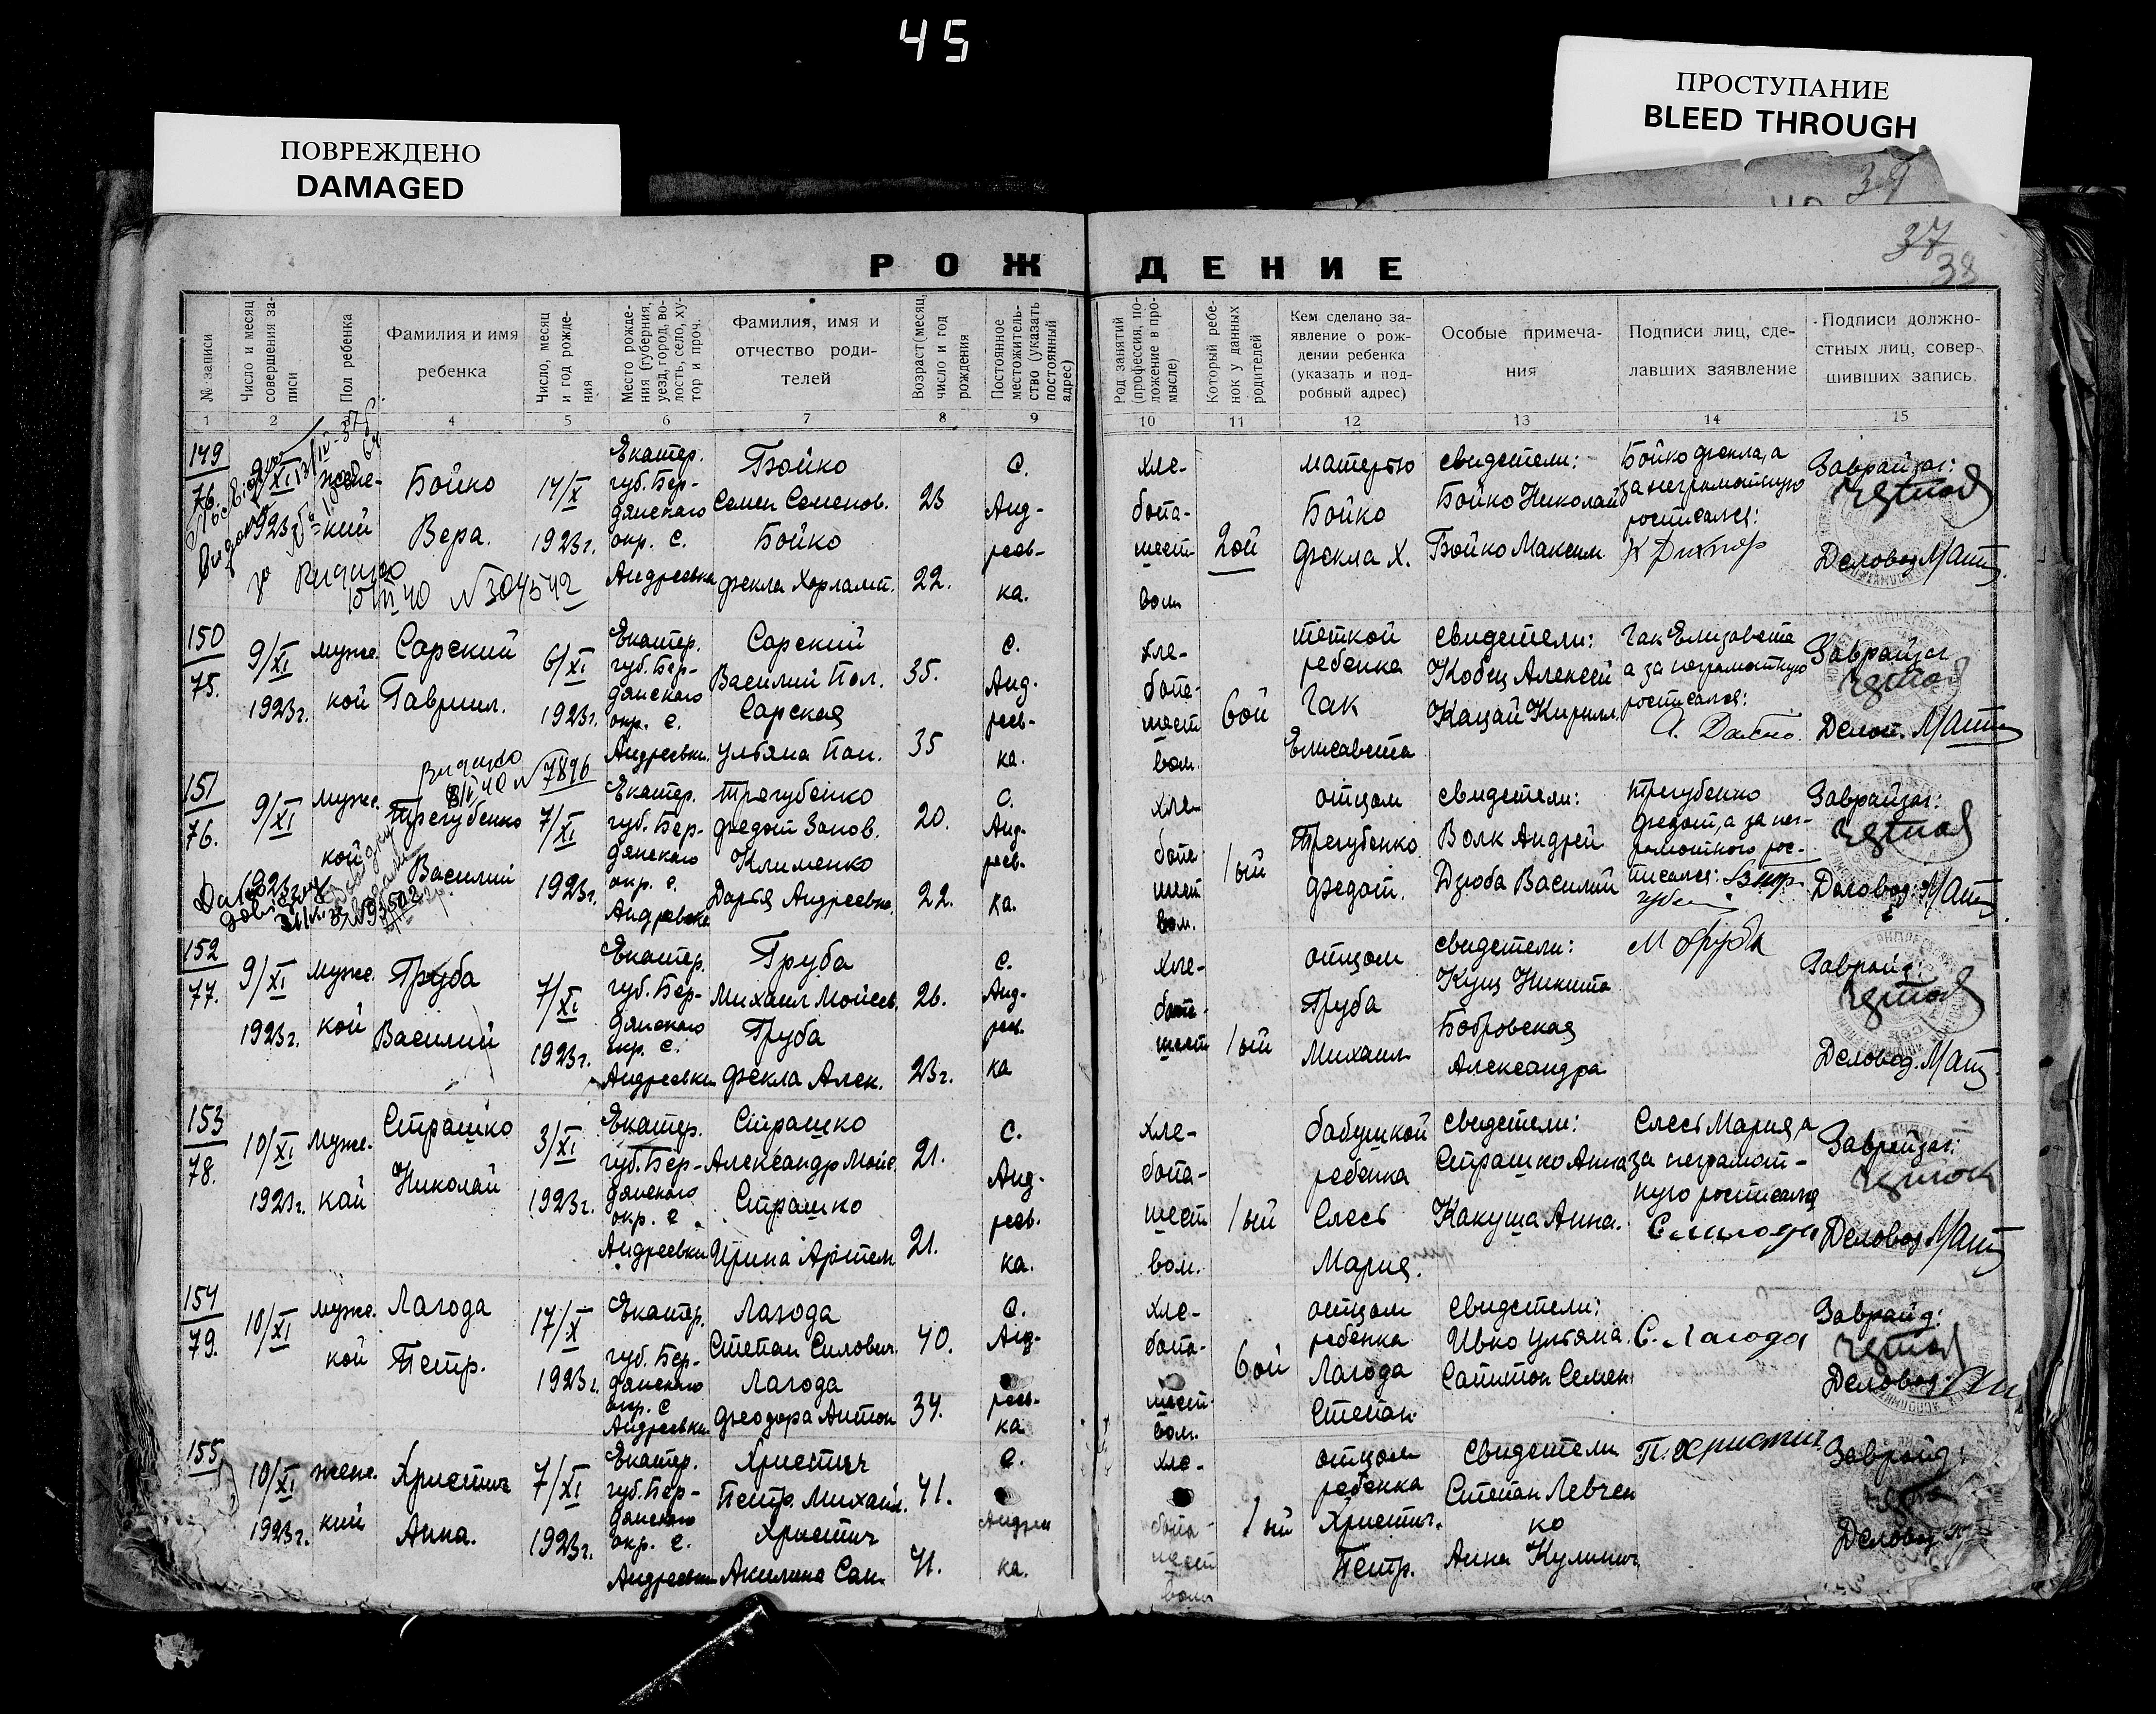 45
ПРОСТУПАНИЕ
BLEED THROUGH
ПОВРЕЖДЕНО
DAMAGED
39
37
38
РОЖДЕНИЕ
№ записи
Число и месяц совершения за-
писи
Пол ребенка
Фамилия и имя
ребенка
Число, месяц
и год рожде-
ния
Место рожде-
ния (губерния,
уезд, город, во-
лость, село, ху-
тор и проч.
Фамилия, имя и
отчество роди-
телей
Возраст (месяц,
число и год
рождения
Постоянное
местожитель-
ство (указать
постоянный
адрес)
Род занятий
(профессия, по-
ложение в про-
мысле)
Который ребе-
нок у данных
родителей
Кем сделано за-
явление о рож-
дении ребенка
(указать и под-
робный адрес)
Особые примеча-
ния
Подписи лиц, сде-
лавших заявление
Подписи должно-
стных лиц, совер-
шивших запись.
1 2 3 4 5 6 7 8 9 10 11 12 13 14 15
149
76.
XI
1923г.
женс-
кий
Бойко
Вера.
14/X
1923г.
Екатер.
губ. Бер-
дянского
окр. с.
Андреевка
Бойко
Семен Семенов.
Бойко
Фекла Харламп.
23
22.
с.
Анд-
реев-
ка.
хле-
бопа-
шест
вом
2ой
матерью
Бойко
Фекла Х.
свидетели:
Бойко Николай
Бойко Максим
Бойко Фекла, а
за неграмотную
росписался:
Заврайзаг:
Деловод
15/II 40 №304542
150
75.
9/XI
1923г.
мужс.
кой
Сарский
Гавриил.
6/XI
1923г.
Екатер.
губ. Бер-
дянского
окр. с.
Андреевки.
Сарский
Василий Пол.
Сарская
Ульяна Пан.
35.
35
с.
Анд.
реев-
ка.
хле-
бопа-
шест
вом.
6ой
теткой
ребенка
Гак
Елисавета
свидетели:
Кобец Алексей
Кацай Кирилл.
Гак Елизавета
а за неграмотную
росписался:
Заврайзаг
Делов.
151
76.
9/XI
1923г.
мужс.
кой
№7896
Трегубенко
Василий
7/XI
1923г.
Екатер.
губ. Бер-
дянского
окр. с.
Андреевка
Трегубенко
Федот Занов.
Клименко
Дарья Андреевна.
20.
22.
с.
Анд-
реев-
ка.
хле-
бопа
шест
вом.
1ый
отцом
Трегубенко
Федот.
свидетели:
Волк Андрей
Дзюба Василий
Трегубенко
Федот, а за нег-
рамотного рос-
писался:
Заврайзаг:
Деловод:
152
77.
9/XI
1923г.
мужс.
кой
Груба
Василий
7/XI
1923г.
Екатер.
губ. Бер-
дянского
окр. с.
Андреевки
Груба
Михаил Моисеев.
Груба
Фекла Алек.
26.
23г.
с.
Анд-
реев-
ка
хле-
бопа-
шест
1ый
отцом
Груба
Михаил
свидетели:
Кущ Никита
Бобровская
Александра
М Груба
Заврайз:
Деловод.
153
78.
10/XI
1923г.
мужс.
кой
Страшко
Николай
3/XI
1923г.
Екатер.
губ. Бер-
дянского
окр. с.
Андреевки
Страшко
Александр Моис.
Страшко
Ирина Артем
21.
21.
с.
Анд-
реев-
ка.
хле-
бопа-
шест
вом.
1ый
бабушкой
ребенка
Слесь
Мария.
свидетели:
Страшко Анна
Какуша Анна.
Слесь Мария, а
за неграмот-
ную росписался
Заврайзаг:
Деловод
154
79.
10/XI
мужс.
кой
Лагода
Петр.
17/X
1923г.
Екатер.
губ. Бер-
дянского
окр. с
Андреевки.
Лагода
Степан Силович.
Лагода
Феодора Антон
40.
34.
с.
Анд-
реев-
ка
хле-
бопа-
шест
вом.
6ой
отцом
ребенка
Лагода
Степан.
свидетели:
Ивко Ульяна.
Саптон Семен
С. Лагода
Заврайз:
Деловод:
155
10/XI
1923г.
женс.
кий
Христич
Анна.
7/XI
1923г.
Екатер.
губ. Бер-
дянского
окр. с.
Андреевки
Христич
Петр. Михайл.
Христич
Акилина Сам.
41.
41.
с.
Андрее
ка.
хле-
бопа-
шест
вом
1ый
отцом
ребенка
Христич.
Петр.
Свидетели
Степан Левчен
ко
Анна Кулинич
П. Христич
Заврайз:
Деловод